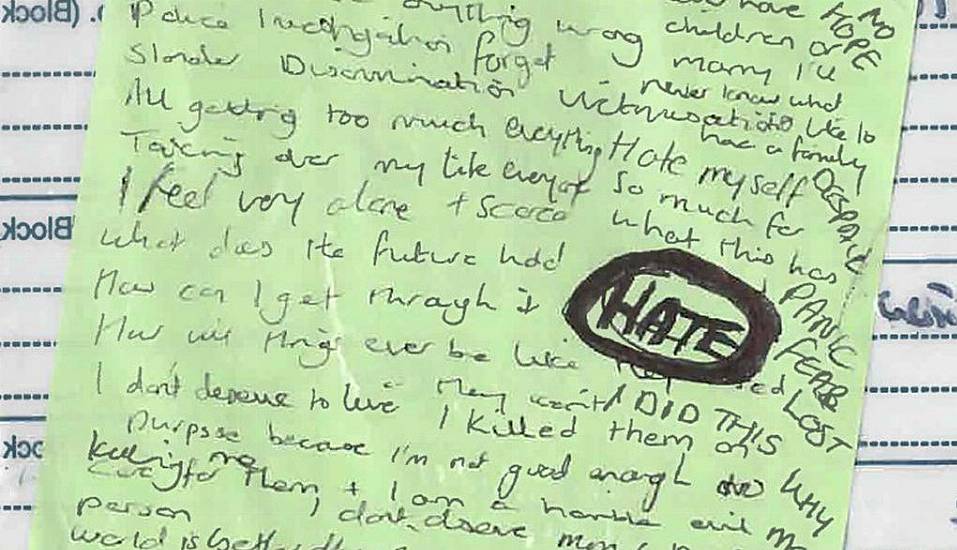 anything wrong have
Police Investigation forget children or marry I'll NO HOPE
Slander Discrimination Victimisation never know what
All getting too much everything like to have a family
Taking over my life everyday Hate myself DESPAIR
I feel very alone + scared so much for
what does the future hold what this has
How can I get through it HATE PANIC
How will things ever be like FEAR
I don't deserve to live They won't I DID THIS LOST
I killed them on
purpose because I'm not good enough to WHY
killing me
care for them + I am a horrible evil
person I don't deserve
world is better
(Block
Block